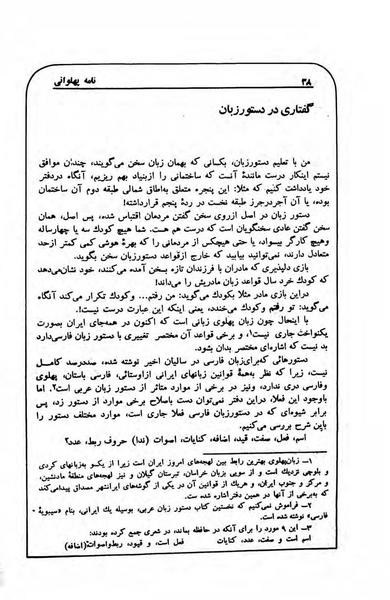 ۳۸
نامه پهلوانی
گفتاری در دستورزبان
من با تعلیم دستورزبان، بکسانی که بهمان زبان سخن می‌گویند، چندان موافق
نیستم اینکار درست مانندهٔ آنست که ساختمانی را ازبنیاد بهم ریزیم، آنگاه دردفتر
خود یادداشت کنیم که مثلا: این پنجره متعلق به‌اطاق شمالی طبقه دوم آن ساختمان
بوده، یا آن آجردرجرز طبقه نخست در ردهٔ پنجم قرارداشته!
دستور زبان در اصل ازروی سخن گفتن مردمان اقتباس شده، پس اصل، همان
سخن گفتن عادی سخنگویان است که درست هم هست. شما هیچ کودك سه یا چهارساله
وهیچ کارگر بیسواد، یا حتی هیچکس از مردمانی را که بهرهٔ هوشی کمی کمتر ازحد
متعادل دارند، نمی‌توانید بیابید که خارج ازقواعد دستورزبان سخن بگوید.
بازی دلپذیری که مادران با فرزندان تازه بسخن آمده می‌کنند، خود نشان‌میدهد
که کودك خرد سال قواعد زبان مادریش را میداند!
دراین بازی مادر مثلا بکودك می‌گوید: من رفتم... وکودك تکرار می‌کند آنگاه
می‌گوید: تو رفتم وکودك می‌خندد، یعنی اینکه این عبارت درست نیست!.
با اینحال چون زبان پهلوی زبانی است که اکنون در همه‌جای ایران بصورت
یکنواخت جاری نیست۱، و برخی قواعد آن مختصر تغییری با دستور زبان فارسی‌دارد
بد نیست که اشاره‌ای مختصر بدان بشود.
دستورهائی که‌برای‌زبان فارسی در سالیان اخیر نوشته شده، صددرصد کامل
نیست، زیرا که نظر به‌همهٔ قوانین زبانهای ایرانی ازاوستائی، فارسی باستان، پهلوی
وفارسی دری ندارد، ونیز در برخی از موارد متاثر از دستور زبان عربی است۲. اما
باوجود این فعلا، دراین دفتر نمی‌توان دست باصلاح برخی موارد از دستور زد، پس
برابر شیوه‌ای که در دستورزبان فارسی فعلا جاری است، موارد مختلف دستور را
باین شرح بررسی می‌کنیم.
اسم، فعل، صفت، قید، اضافه، کنایات، اصوات (ندا) حروف ربط، عدد۳
۱ـ زبان‌پهلوی بهترین رابط بین لهجه‌های امروز ایران است زیرا از یکسو به‌زبانهای کردی
و بلوچی نزدیك است و از سویی بزبان خراسان، تبرستان گیلان و نیز لهجه‌های منطقهٔ مادنشین،
و مرکز و جنوب ایران، و هریك از قوانین آن در یکی از گوشه‌های ایرانشهر مصداق پیدامی‌کند
که به‌برخی از آنها در همین دفتراشاره شده است.
۲ـ فراموش نمی‌کنیم که نخستین کتاب دستور زبان عربی، بوسیله یك ایرانی، بنام «سیبویهٔ
فارسی» نوشته شده است.
۳ـ این ۹ مورد را برای آنکه در حافظه بماند، در شعری جمع کرده بودند:
اسم و صفت، عدد، کنایات فعل است، و قیود، ربط‌واصوات+(اضافه)